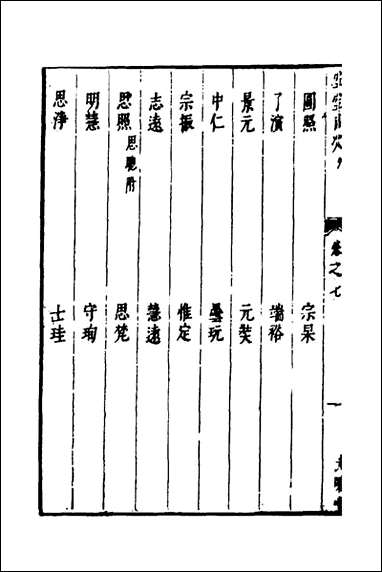 卷之七
圓照　宗杲
了演　端裕
景元　元奘
中仁　曇玩
宗振　惟定
志遠　慧遠
思照 思聰附　思梵
明慧　守珣
思淨　士珪